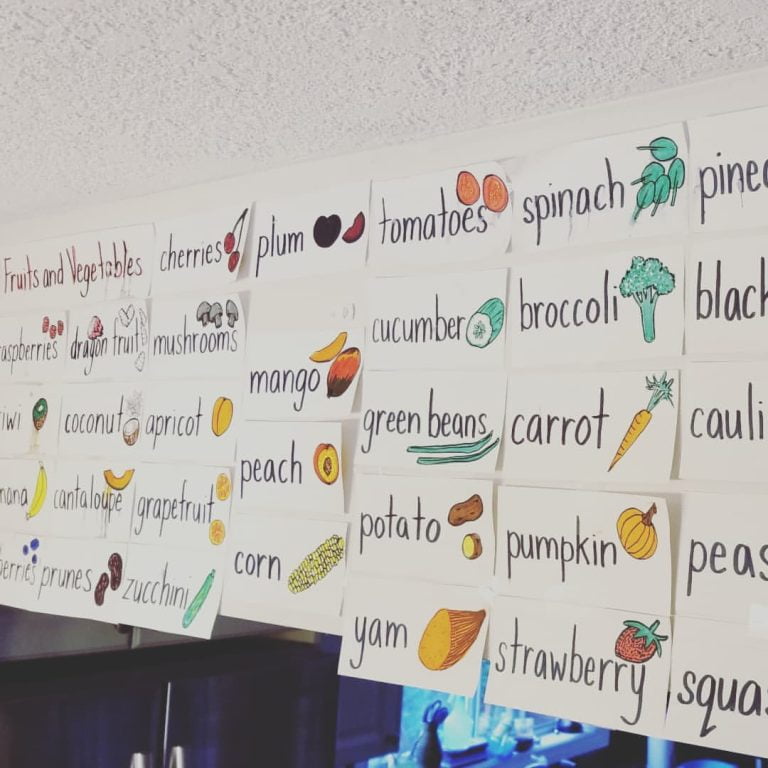 Fruits and Vegetables
cherries
plum
tomatoes
spinach
pine
raspberries
dragon fruit
mushrooms
mango
cucumber
broccoli
black
iwi
coconut
apricot
peach
green beans
carrot
cauli
nana
cantaloupe
grapefruit
corn
potato
pumpkin
peas
berries
prunes
zucchini
yam
strawberry
squas